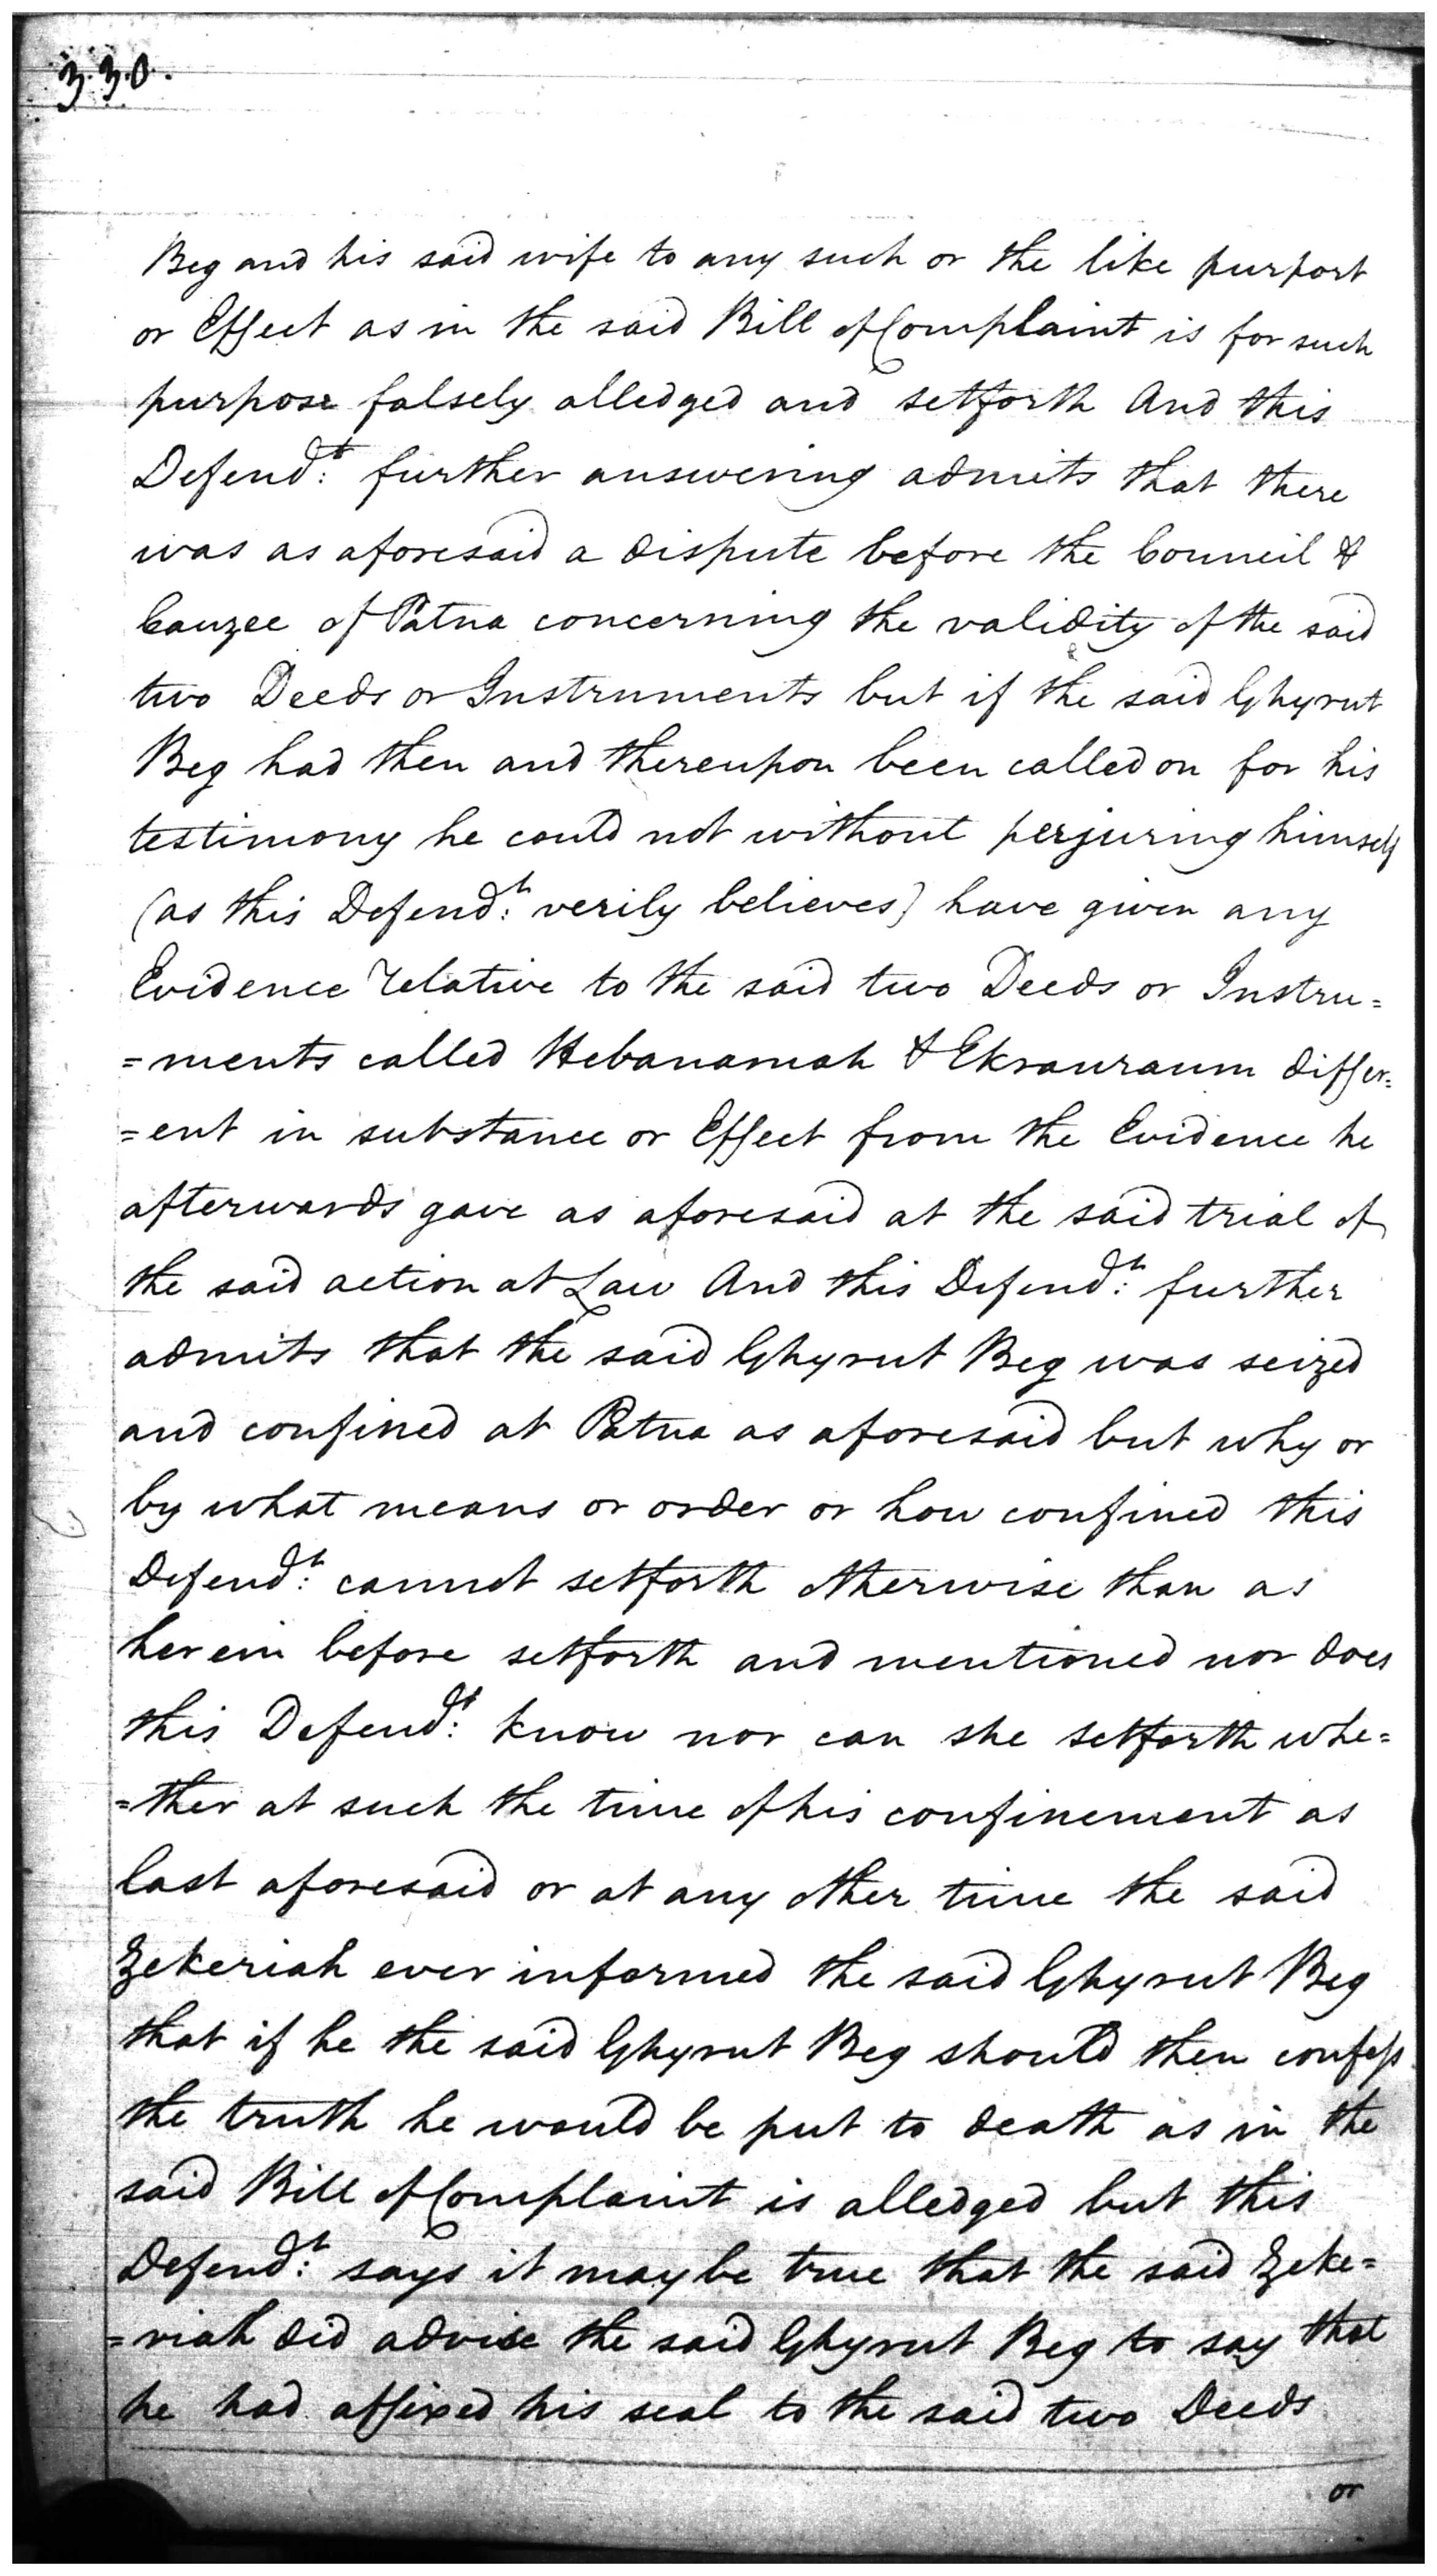 330.
Beg and his said wife to any such or the like purport
or Effect as in the said Bill of Complaint is for such
purpose falsely alledged and setforth And this
Defend:t further answering admits that there
was as aforesaid a dispute before the Council &
Cauzee of Patna concerning the validity of the said
two Deeds or Instruments but if the said Ghyrut
Beg had then and thereupon been called on for his
testimony he could not without perjuring himself
(as this Defend:t verily believes) have given any
Evidence relative to the said two Deeds or Instru=
=ments called Hebanamah & Ekrauraum differ=
=ent in substance or Effect from the Evidence he
afterwards gave as aforesaid at the said trial of
the said action at Law And this Defend:t further
admits that the said Ghyrut Beg was seized
and confined at Patna as aforesaid but why or
by what means or order or how confined this
Defend:t cannot setforth otherwise than as
herein before setforth and mentioned nor does
this Defend:t know nor can she setforth whe=
=ther at such the time of his confinement as
last aforesaid or at any other time the said
Zekeriah ever informed the said Ghyrut Beg
that if he the said Ghyrut Beg should then confess
the truth he would be put to death as in the
said Bill of Complaint is alledged but this
Defend:t says it may be true that the said Zeke=
=riah did advise the said Ghyrut Beg to say that
he had affixed his seal to the said two Deeds
or